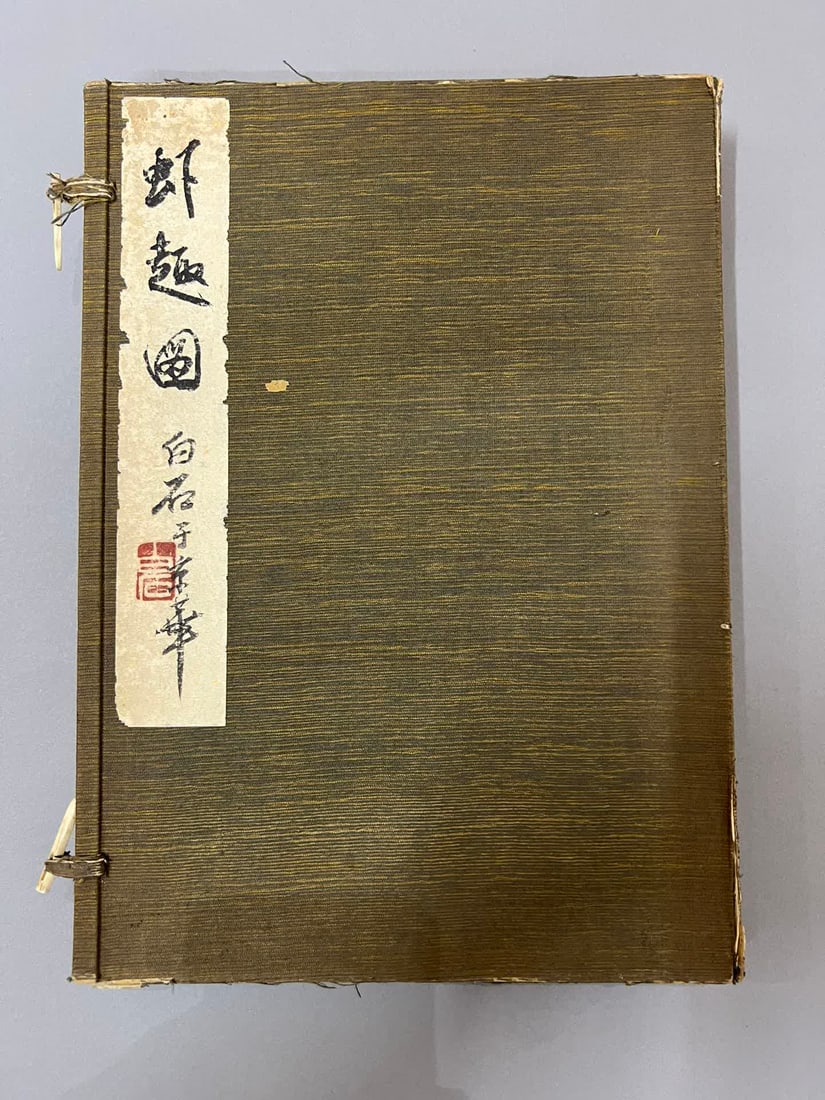 虾趣圖
白石于京華